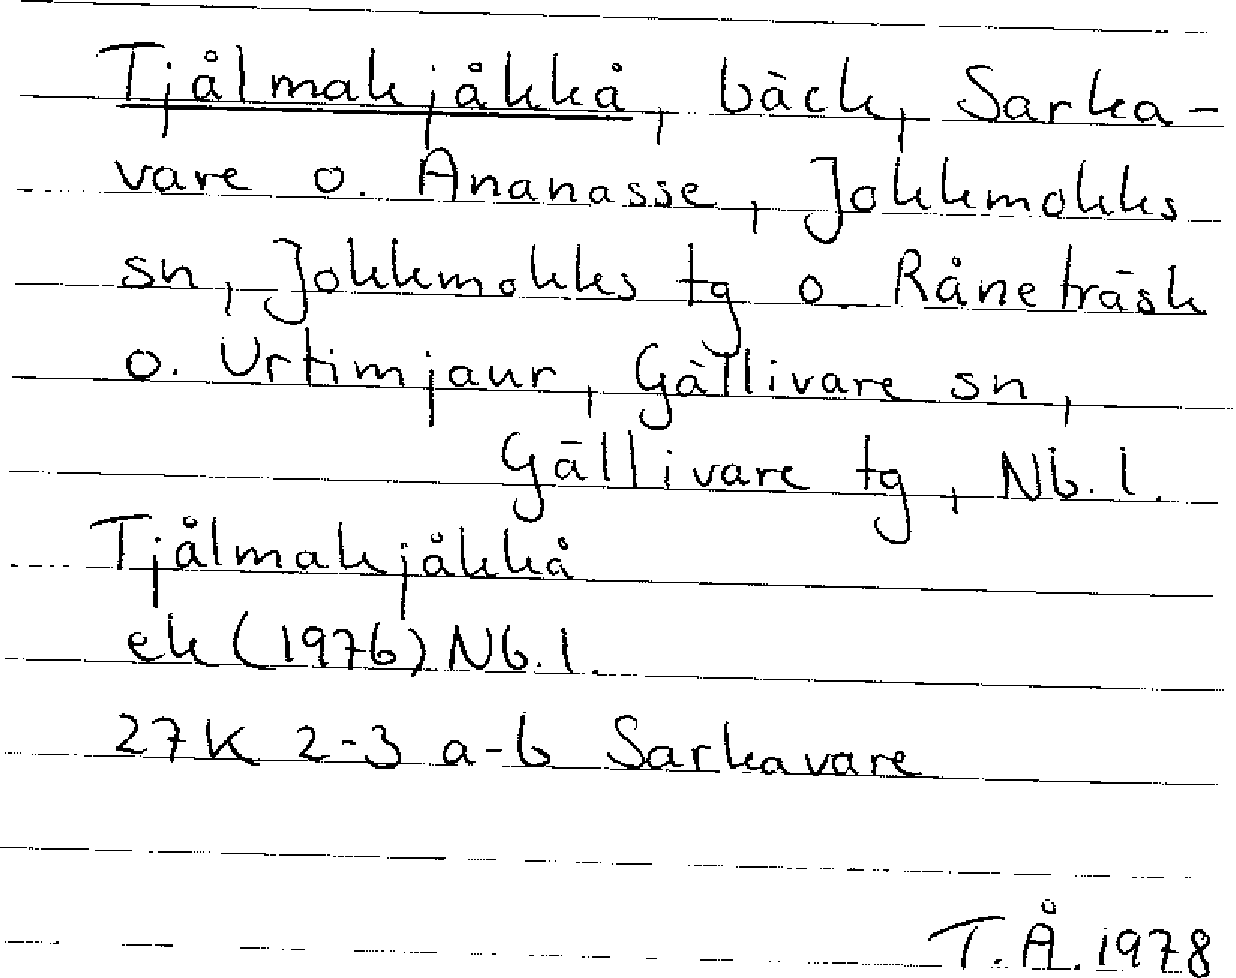 Tjålmakjåkkå, bäck, Sarka-
vare o. Ananasse, Jokkmokks
sn, Jokkmokks tg o. Råneträsk
o. Urtimjaur, Gällivare sn,
Gällivare tg, Nb. l.
Tjålmakjåkkå
ek (1976) Nb. l.
27K 2-3 a-b Sarkavare
T.Å. 1978